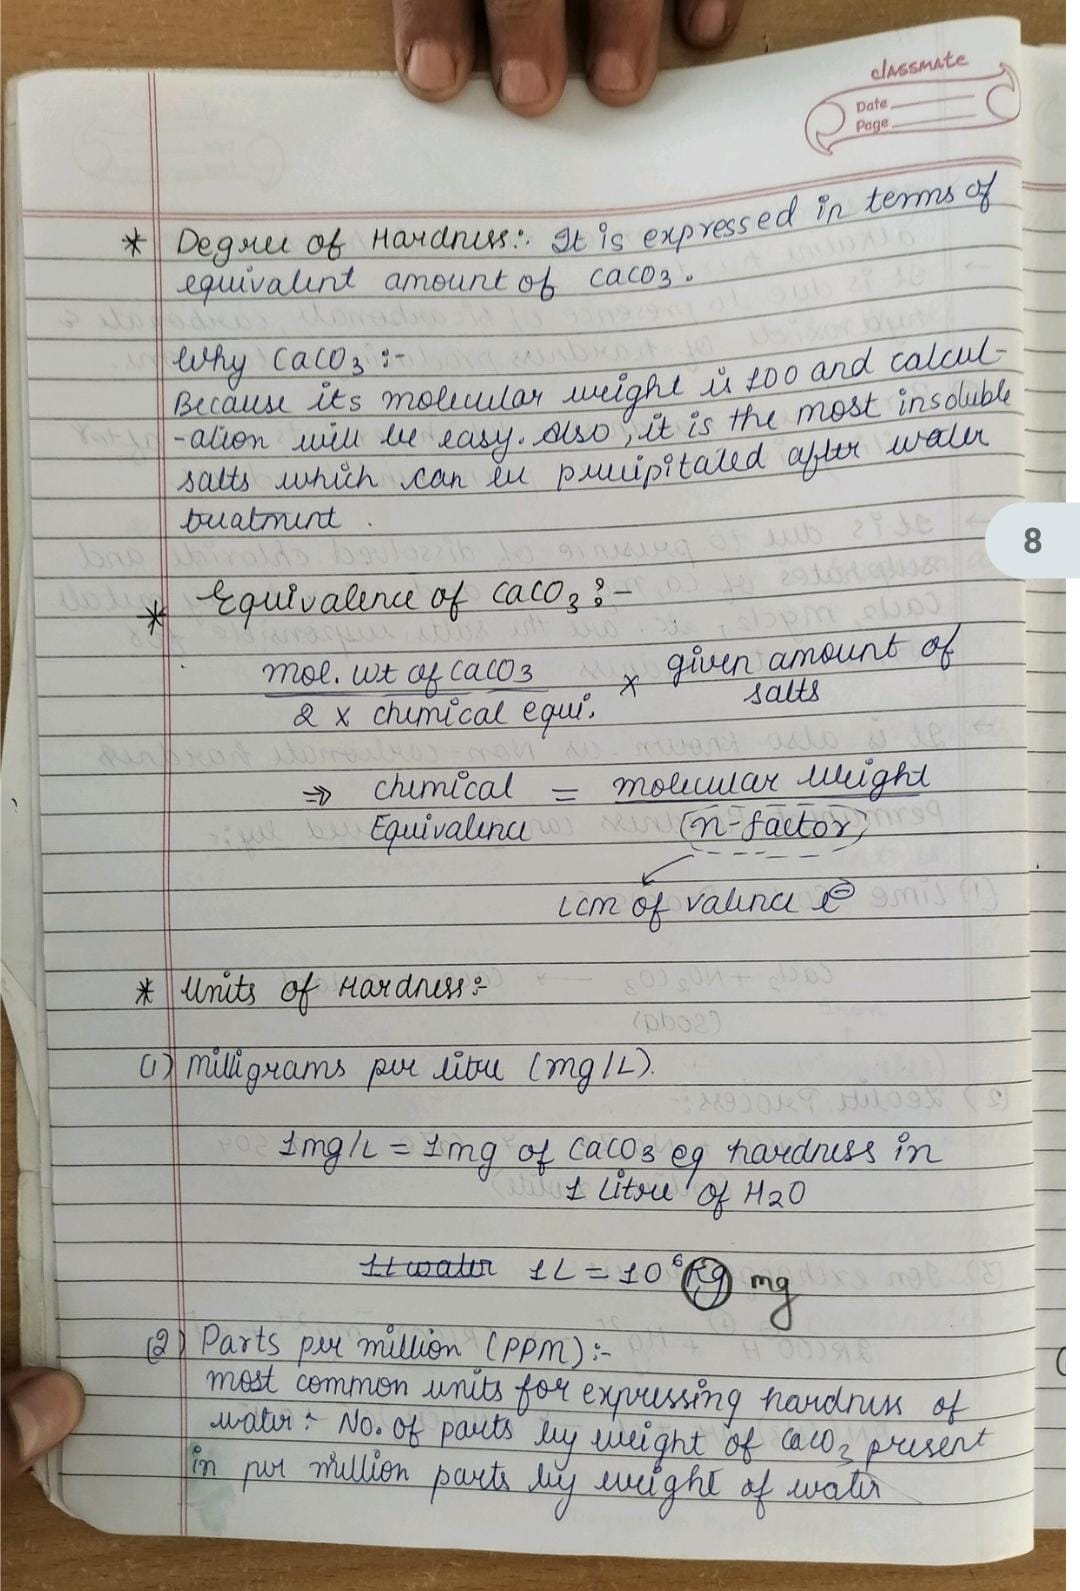 classmate
Date
Page
* Degree of Hardness:- It is expressed in terms of
equivalent amount of CaCO3.
Why CaCO3 :-
Because its molecular weight is 100 and calcul-
-ation will be easy. Also, it is the most insoluble
salts which can be precipitated after water
treatment.
8
* Equivalence of CaCO3 :-
mol. wt of CaCO3 × given amount of
2 × chemical equi. salts
⇒ chemical = molecular weight
Equivalence (n-factor)
LCM of valence e⊖
* Units of Hardness :-
(1) Milligrams per litre (mg/L).
1mg/L = 1mg of CaCO3 eq hardness in
1 Litre of H2O
1L water 1L = 10⁶ Kg mg
(2) Parts per million (PPM) :-
most common units for expressing hardness of
water : No. of parts by weight of CaCO3 present
in per million parts by weight of water